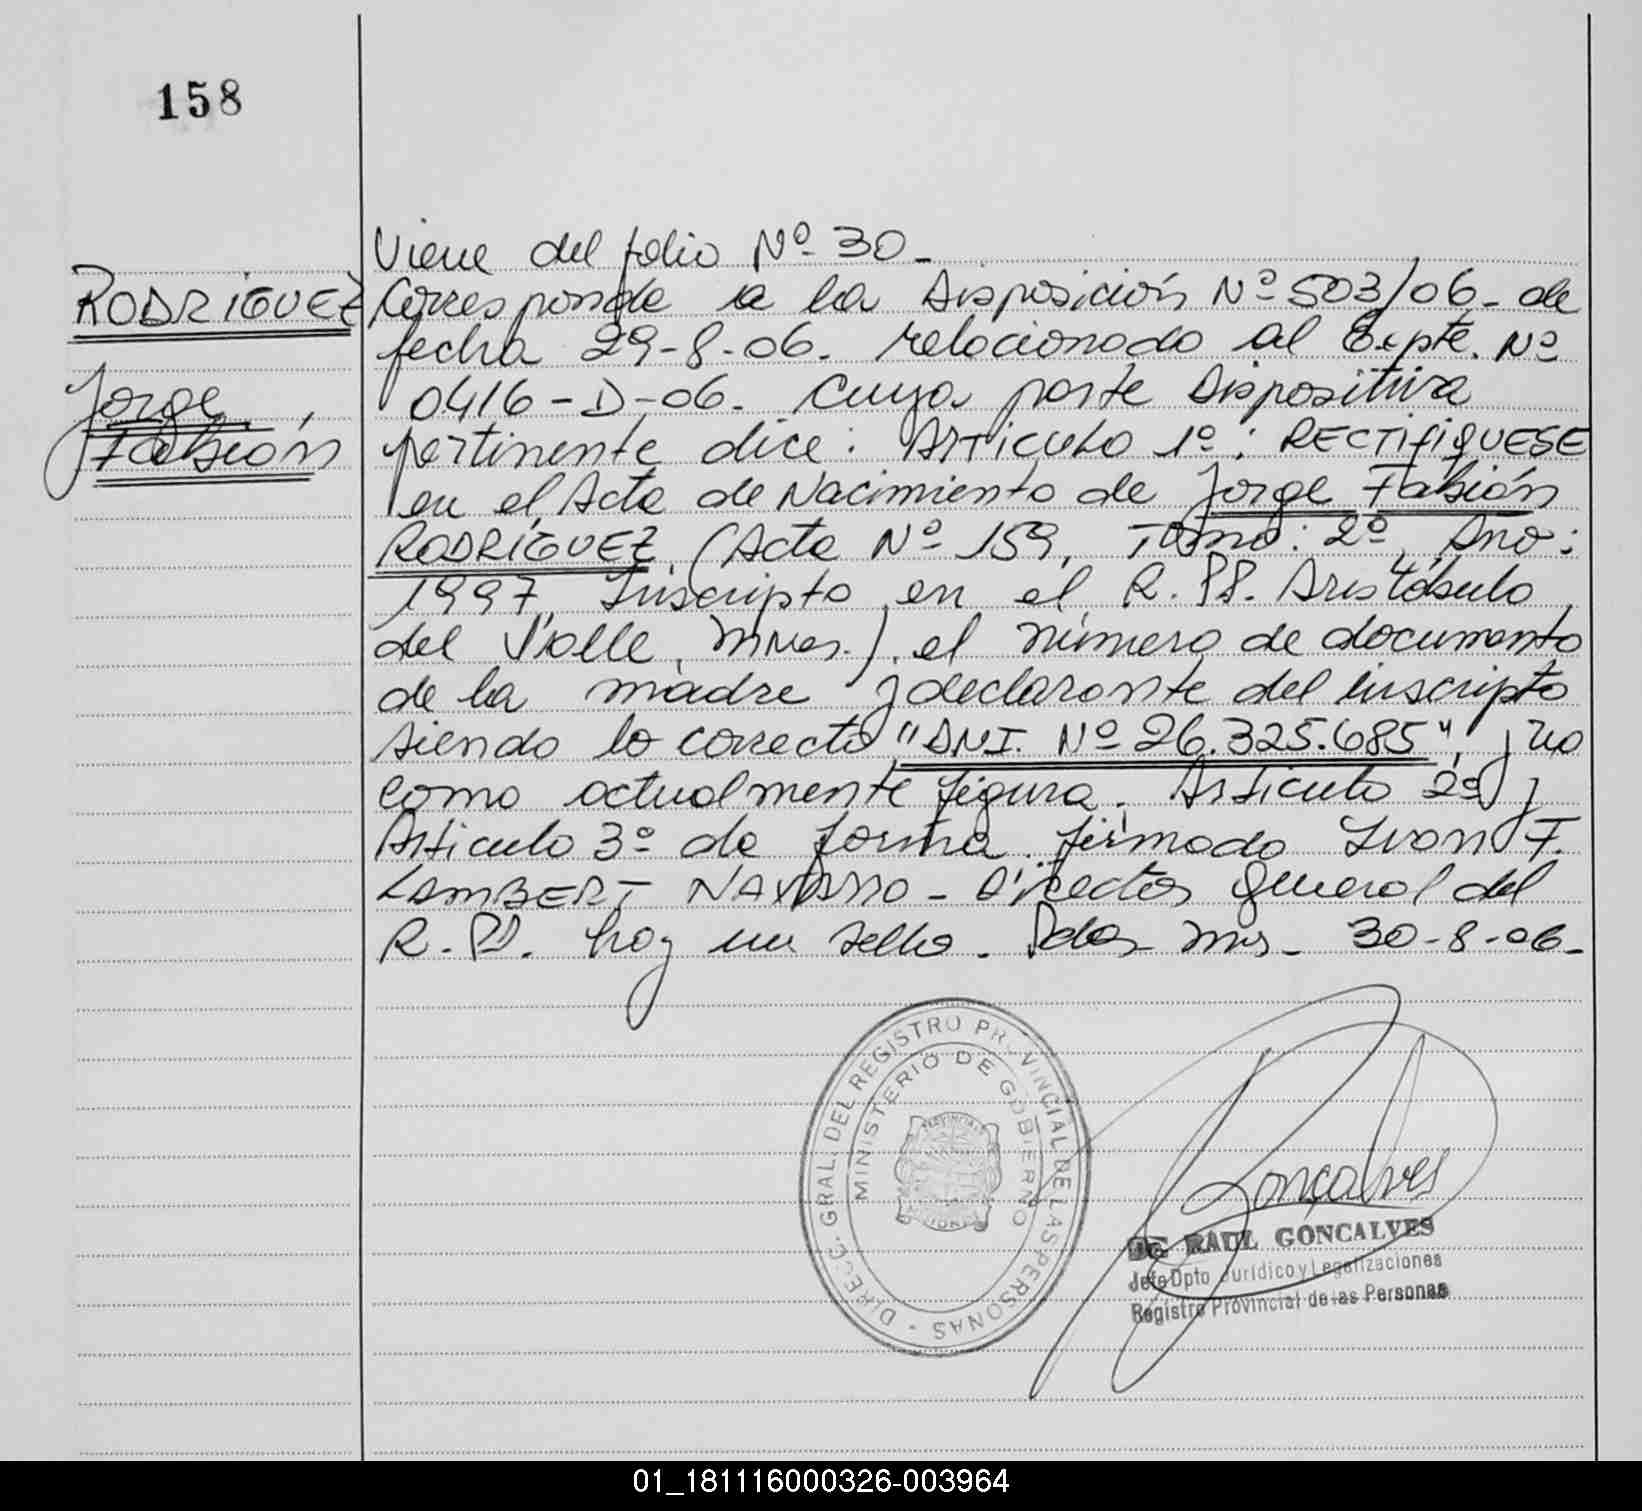 158
RODRÍGUEZ
Jorge
Fabián
Viene del folio Nº 30 -
Corresponde a la Disposición Nº 503/06 - de
fecha 29-8-06. relacionado al Expte. Nº
0416-D-06. Cuya parte Dispositiva
pertinente dice: Artículo 1º: RECTIFIQUESE
en el Acta de Nacimiento de Jorge Fabián
RODRÍGUEZ (Acta Nº 159, Tomo: 2º, Año:
1997, Inscripto en el R. PP. Aristóbulo
del Valle, Mnes.), el número de documento
de la madre y declarante del inscripto
siendo lo correcto "DNI. Nº 26.325.685", y no
como actualmente figura. Artículo 2º y
Artículo 3º de forma. firmado Ivon F.
LAMBERT NAVARRO - Director General del
R. PP. hay un sello. Pdas Mns - 30-8-06-
DIREC. GRAL. DEL REGISTRO PROVINCIAL DE LAS PERSONAS -
MINISTERIO DE GOBIERNO
Gonçalves
RAUL GONCALVES
Jefe Dpto Jurídico y Legalizaciones
Registro Provincial de las Personas
01_181116000326-003964